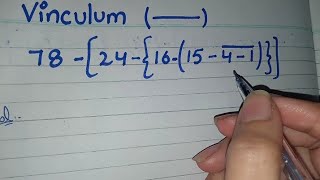 Vinculum (———)
78 - [24 - {16 - (15 - 4̅ ̅-̅ ̅1̅)}]
ol:-